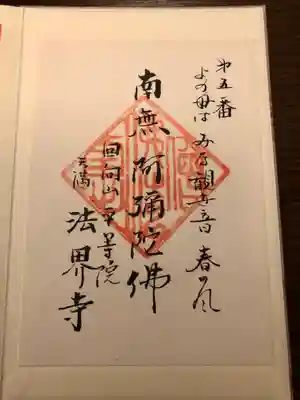 㐧五番
よの母は みな観世音 春の風
南無阿彌陀佛
回向山 平等院
天満 法界寺